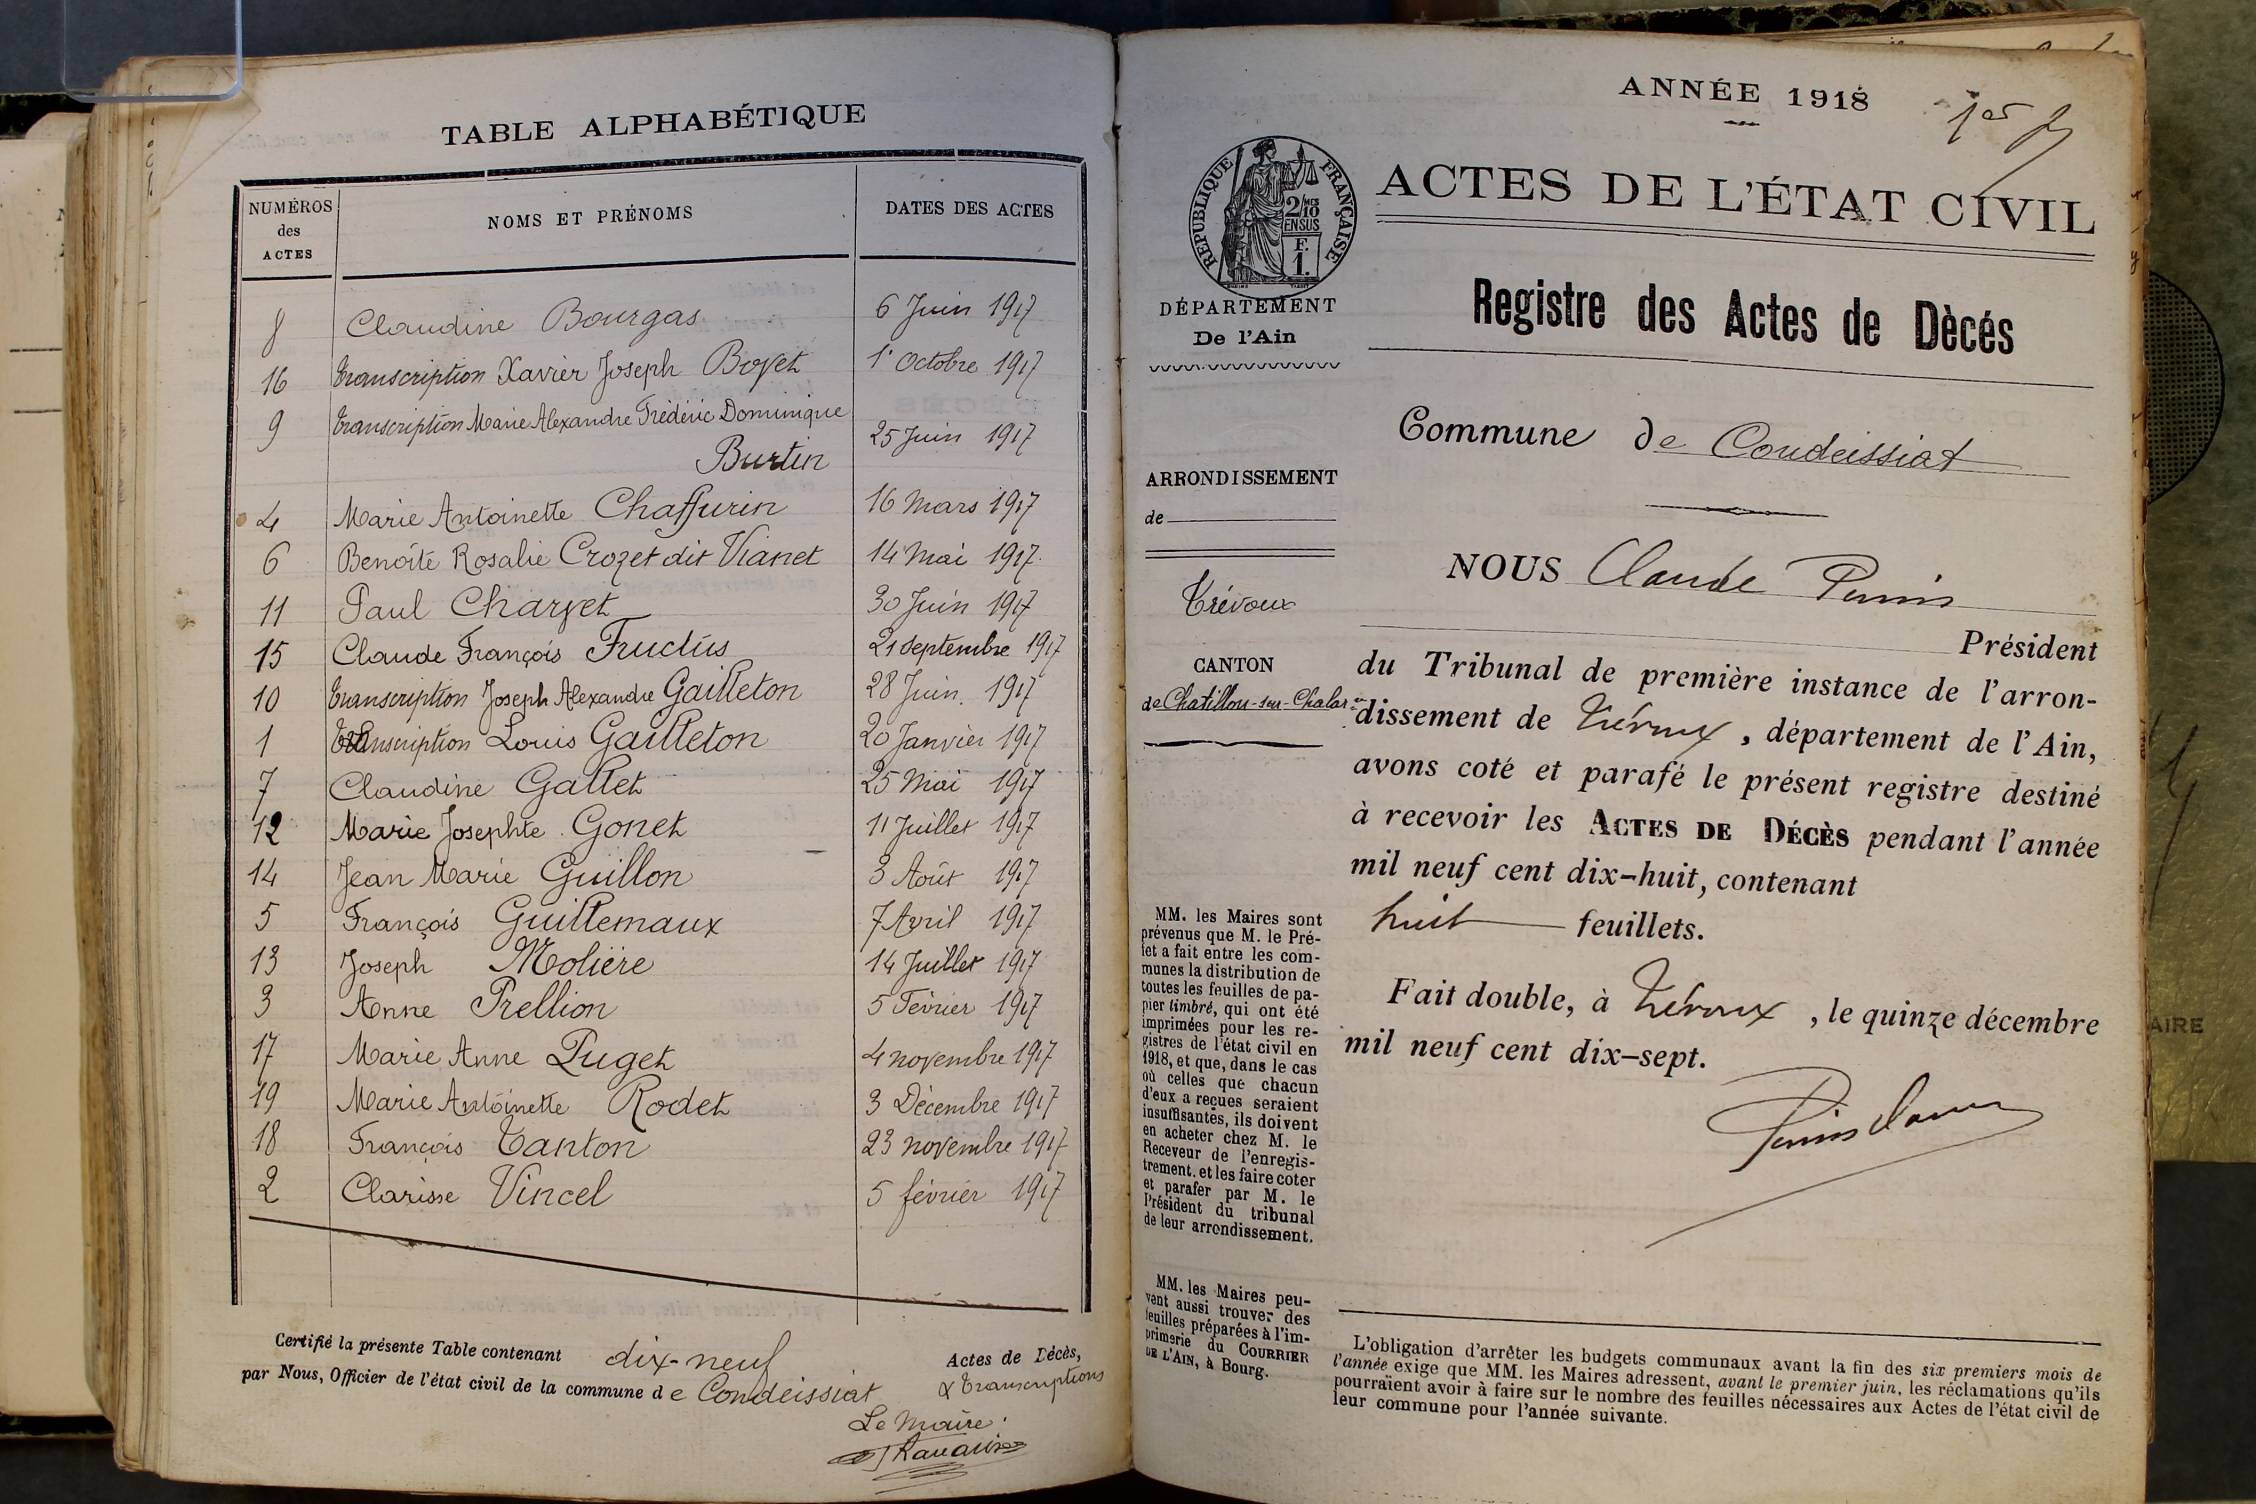 TABLE ALPHABÉTIQUE
NUMÉROS des ACTES | NOMS ET PRÉNOMS | DATES DES ACTES
8 Claudine Bourgas 6 Juin 1917
16 transcription Xavier Joseph Boyet 1er Octobre 1917
9 transcription Marie Alexandre Frédéric Dominique
Burtin 25 Juin 1917
4 Marie Antoinette Chaffurin 16 Mars 1917
6 Benoîte Rosalie Crozet dit Vianet 14 Mai 1917
11 Paul Charvet 30 Juin 1917
15 Claude François Fructus 21 septembre 1917
10 transcription Joseph Alexandre Gailleton 28 Juin 1917
1 transcription Louis Gailleton 20 Janvier 1917
7 Claudine Gallet 25 Mai 1917
12 Marie Josephte Gonet 11 Juillet 1917
14 Jean Marie Guillon 3 Août 1917
5 François Guillemaux 7 Avril 1917
13 Joseph Molière 14 Juillet 1917
3 Anne Prellion 5 Février 1917
17 Marie Anne Puget 4 novembre 1917
19 Marie Antoinette Rodet 3 Décembre 1917
18 François Tanton 23 novembre 1917
2 Clarisse Vincel 5 février 1917
Certifié la présente Table contenant dix-neuf Actes de Décès,
& transcriptions
par Nous, Officier de l'état civil de la commune de Condeissiat
Le Maire
ANNÉE 1918
1er
RÉPUBLIQUE FRANÇAISE
2/10
MES
EN SUS
F.
1.
DÉPARTEMENT
De l'Ain
ARRONDISSEMENT
de
Trévoux
CANTON
de Chatillon-sur-Chalar
MM. les Maires sont
prévenus que M. le Pré-
fet a fait entre les com-
munes la distribution de
toutes les feuilles de pa-
pier timbré, qui ont été
imprimées pour les re-
gistres de l'état civil en
1918, et que, dans le cas
où celles que chacun
d'eux a reçues seraient
insuffisantes, ils doivent
en acheter chez M. le
Receveur de l'enregis-
trement. et les faire coter
et parafer par M. le
Président du tribunal
de leur arrondissement.
MM. les Maires peu-
vent aussi trouver des
feuilles préparées à l'im-
primerie du COURRIER
DE L'AIN, à Bourg.
ACTES DE L'ÉTAT CIVIL
Registre des Actes de Dècés
Commune de Condeissiat
NOUS Claude Perrin
Président
du Tribunal de première instance de l'arron-
dissement de Trévoux, département de l'Ain,
avons coté et parafé le présent registre destiné
à recevoir les ACTES DE DÉCÈS pendant l'année
mil neuf cent dix-huit, contenant
huit feuillets.
Fait double, à Trévoux, le quinze décembre
mil neuf cent dix-sept.
L'obligation d'arrêter les budgets communaux avant la fin des six premiers mois de
l'année exige que MM. les Maires adressent, avant le premier juin, les réclamations qu'ils
pourraient avoir à faire sur le nombre des feuilles nécessaires aux Actes de l'état civil de
leur commune pour l'année suivante.
AIRE